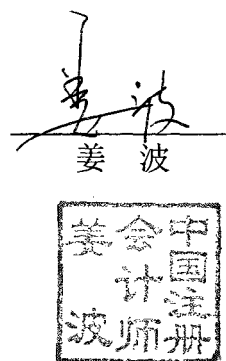 姜波
姜 波
中国注册
会计师
姜波